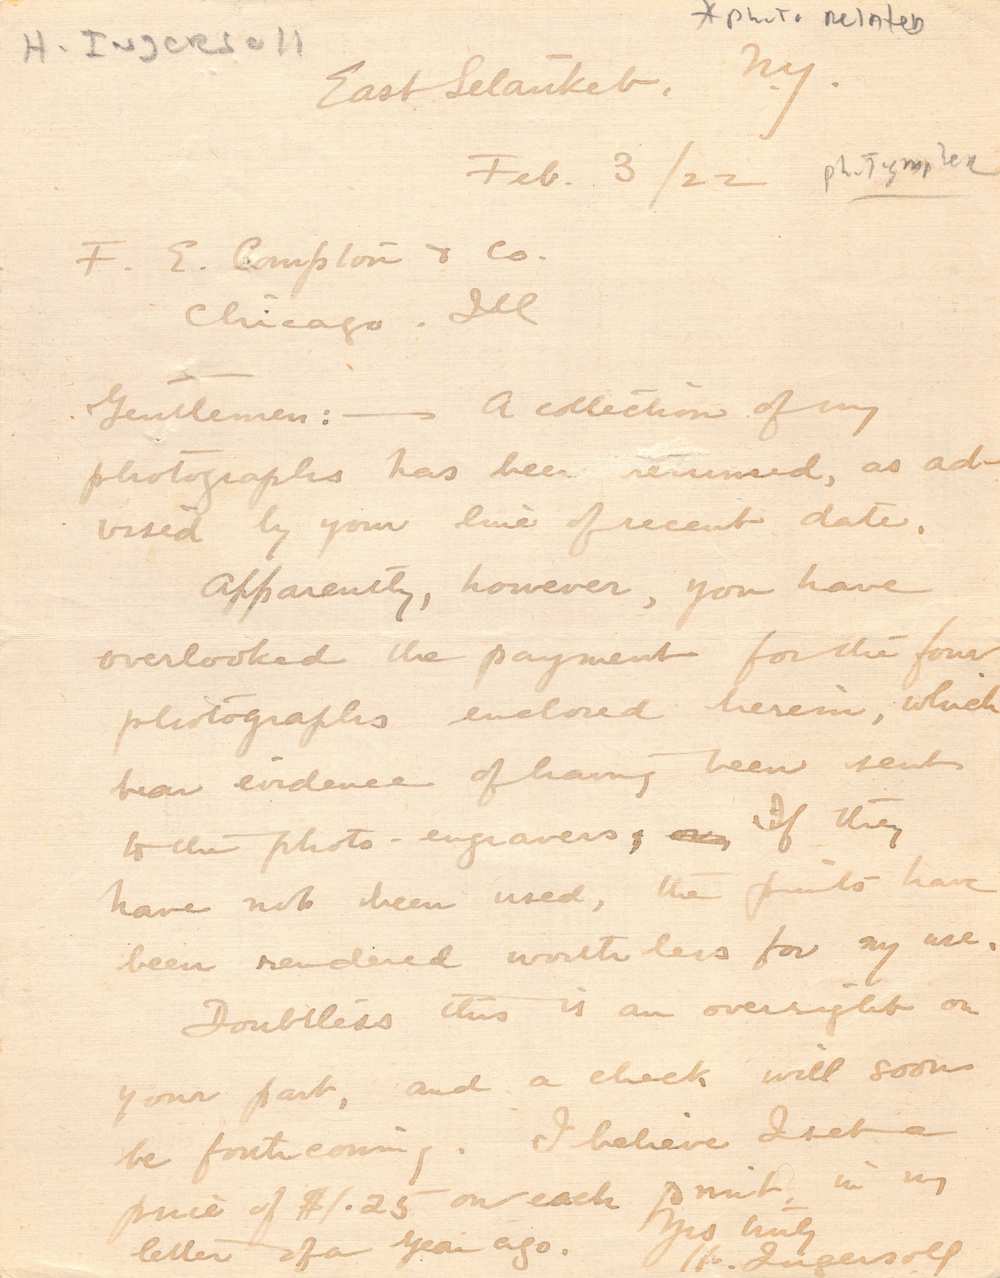 H. Ingersoll
* photo related
East Setauket, N.y.
Feb. 3/22
photographer
F. E. Compton & Co.
Chicago. Ill
Gentlemen: — A collection of my
photographs has been returned, as ad-
vised by your line of recent date.
Apparently, however, you have
overlooked the payment for the four
photographs enclosed herein, which
bear evidence of having been sent
to the photo-engravers; If they
have not been used, the prints have
been rendered worthless for my use.
Doubtless this is an oversight on
your part, and a check will soon
be forthcoming. I believe I set a
price of $1.25 on each print, in my
letter of a year ago.
Yrs truly
H. Ingersoll